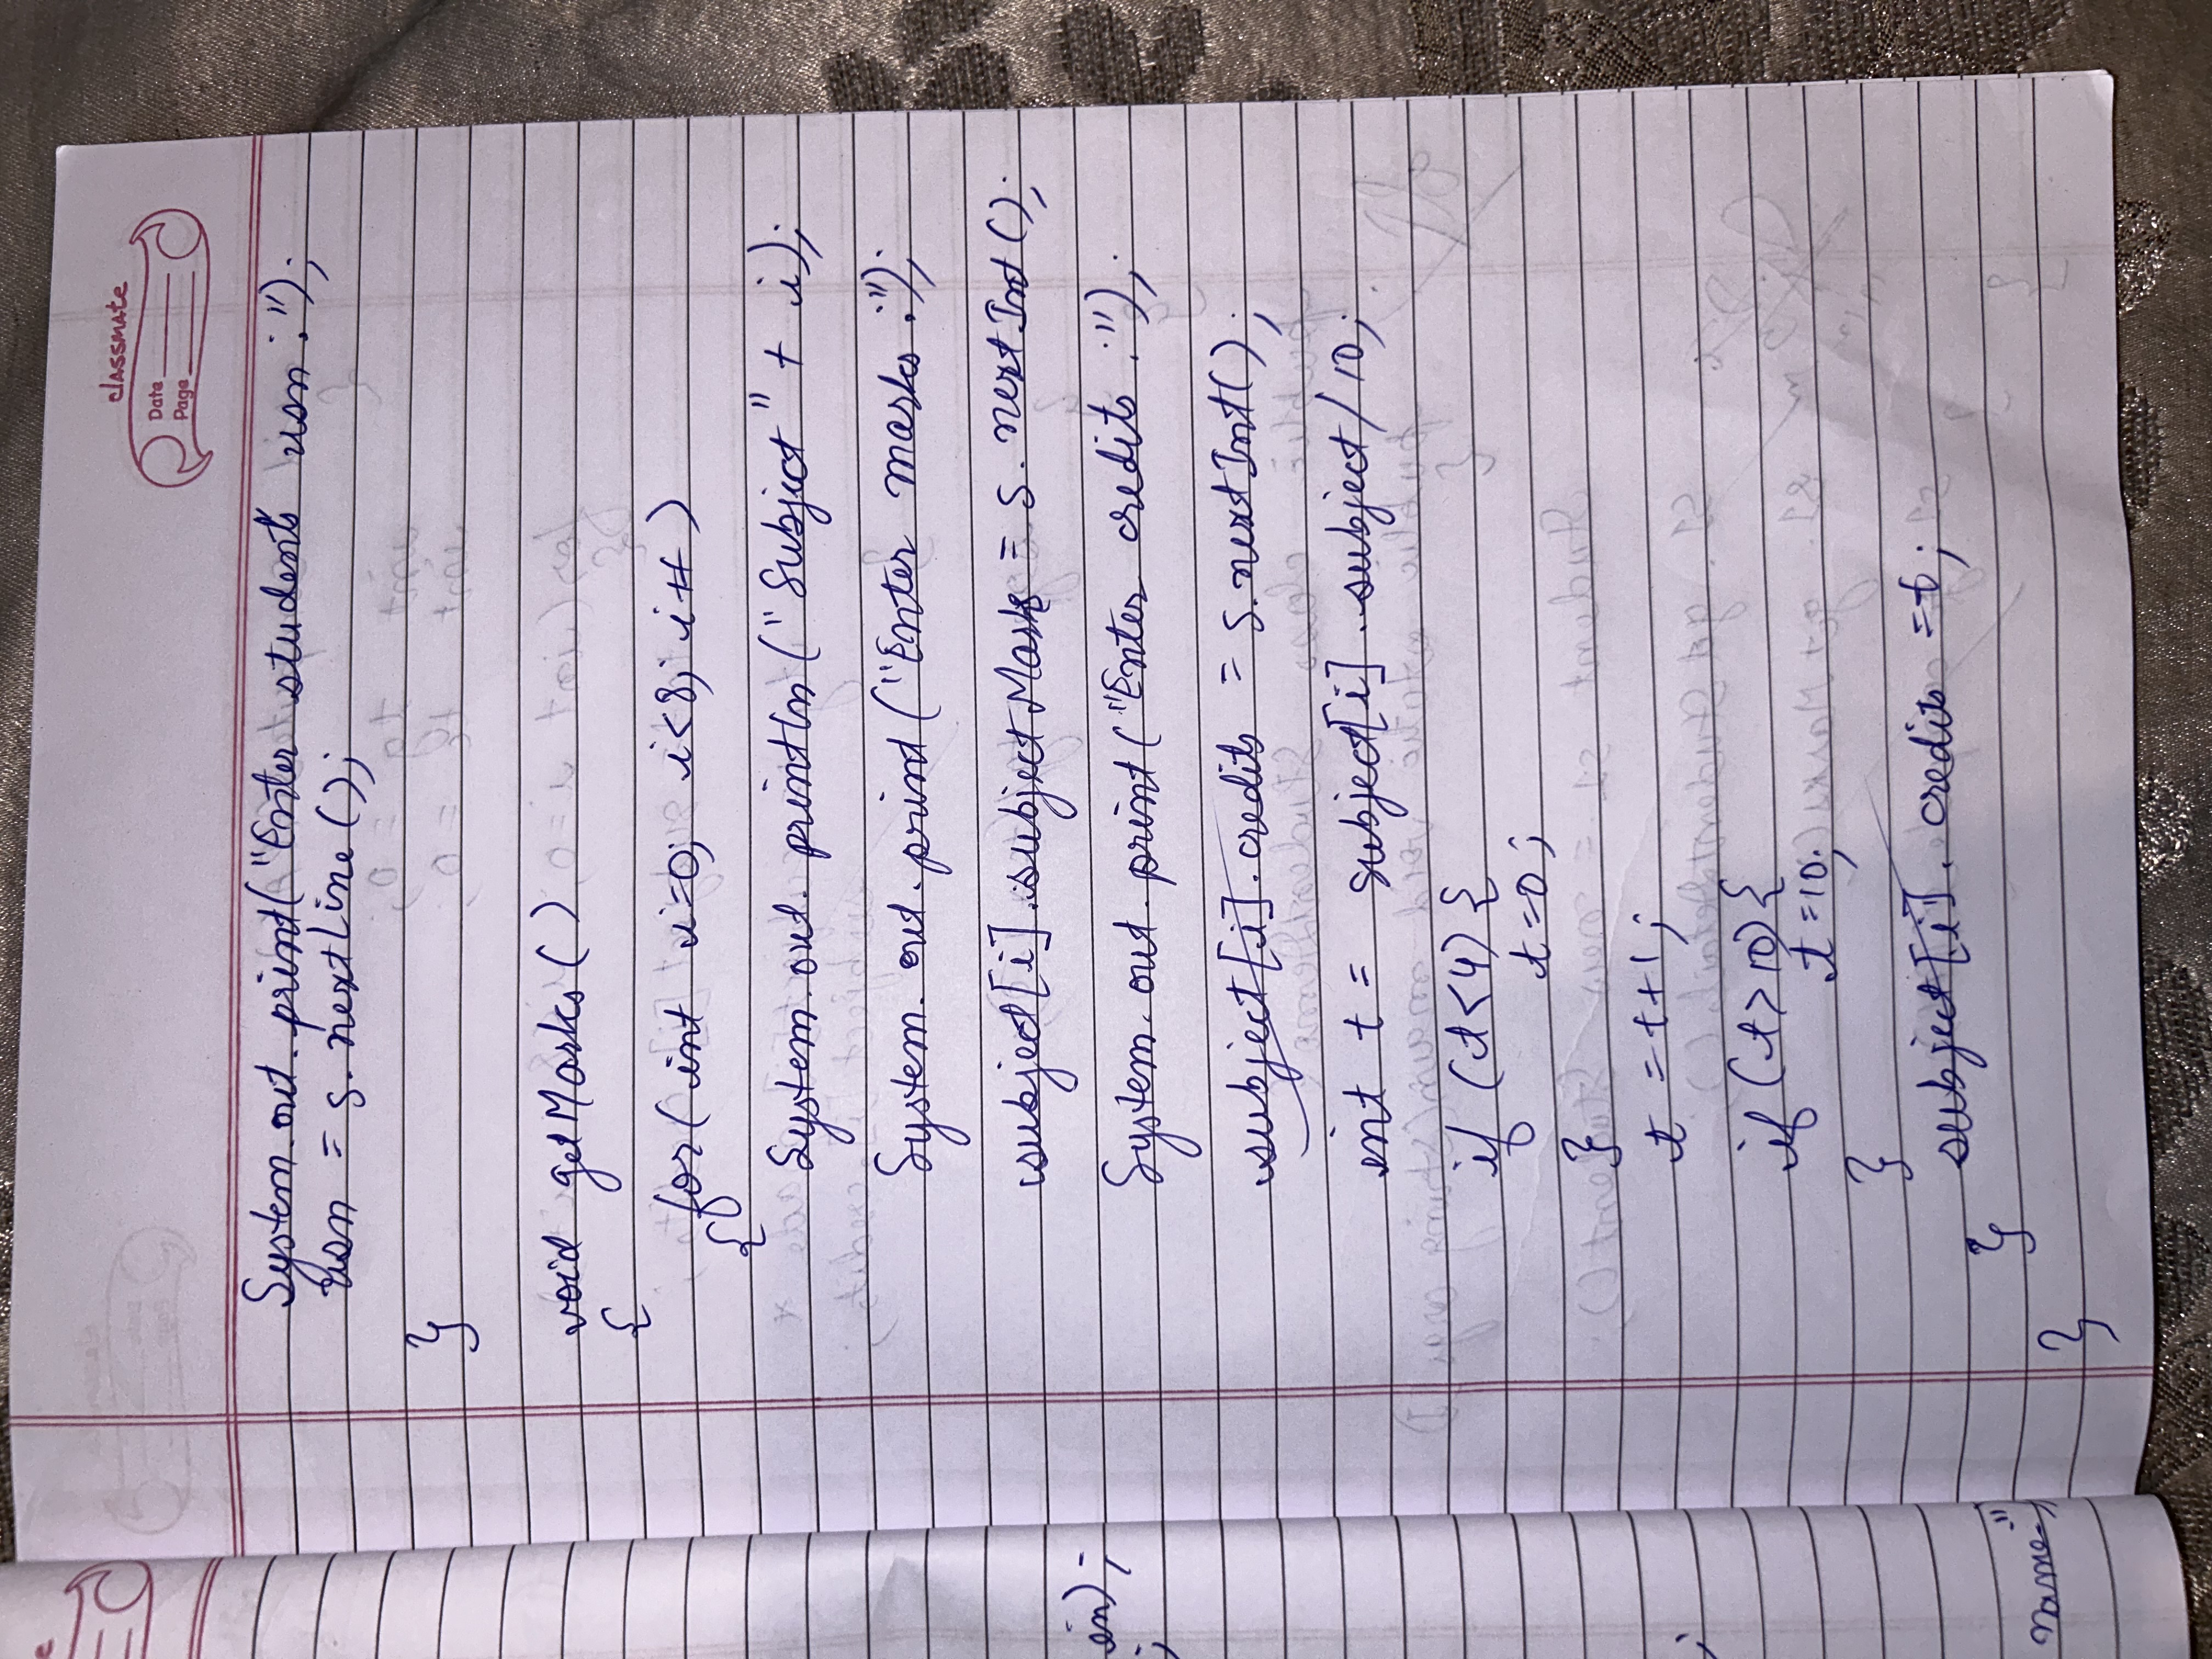 classmate
Date
Page
System.out.print("Enter students usn :");
usn = s.nextLine();
}
void getMarks()
{
for(int i=0; i<8; i++)
{
System.out.println("Subject" + i);
System.out.print("Enter marks :");
subject[i].subjectMarks = s.nextInt();
System.out.print("Enter credits :");
subject[i].credits = s.nextInt();
int t = subject[i].subject/10;
if (t<4) {
t=0;
}
t = t+1;
if (t>10) {
t=10;
}
subject[i].credits = t;
}
}
in);
;
name:")